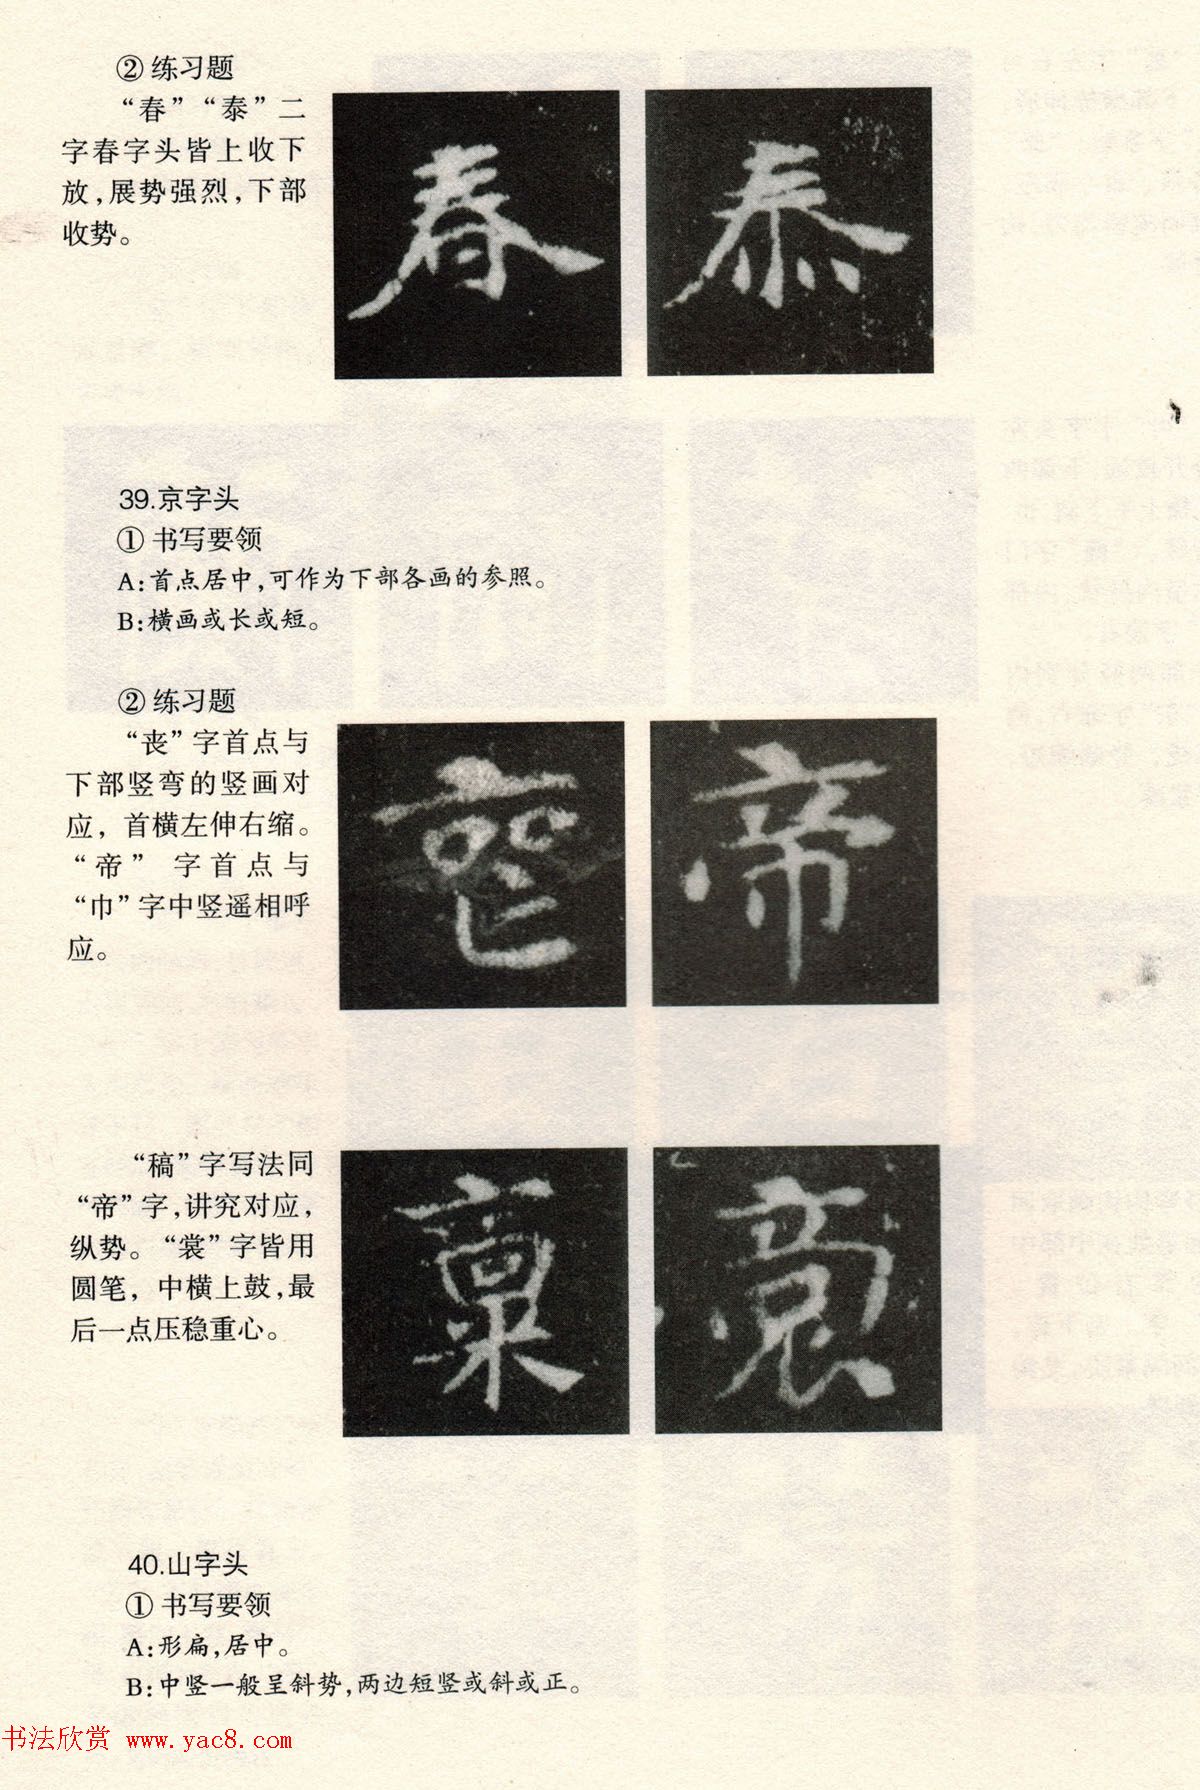 ② 练习题
“春”“泰”二
字春字头皆上收下
放,展势强烈,下部
收势。
春 泰
39.京字头
① 书写要领
A:首点居中,可作为下部各画的参照。
B:横画或长或短。
② 练习题
“丧”字首点与
下部竖弯的竖画对
应，首横左伸右缩。
“帝”字首点与
“巾”字中竖遥相呼
应。
帝
“稿”字写法同
“帝”字,讲究对应,
纵势。“裳”字皆用
圆笔，中横上鼓,最
后一点压稳重心。
40.山字头
① 书写要领
A:形扁,居中。
B:中竖一般呈斜势,两边短竖或斜或正。
书法欣赏 www.yac8.com